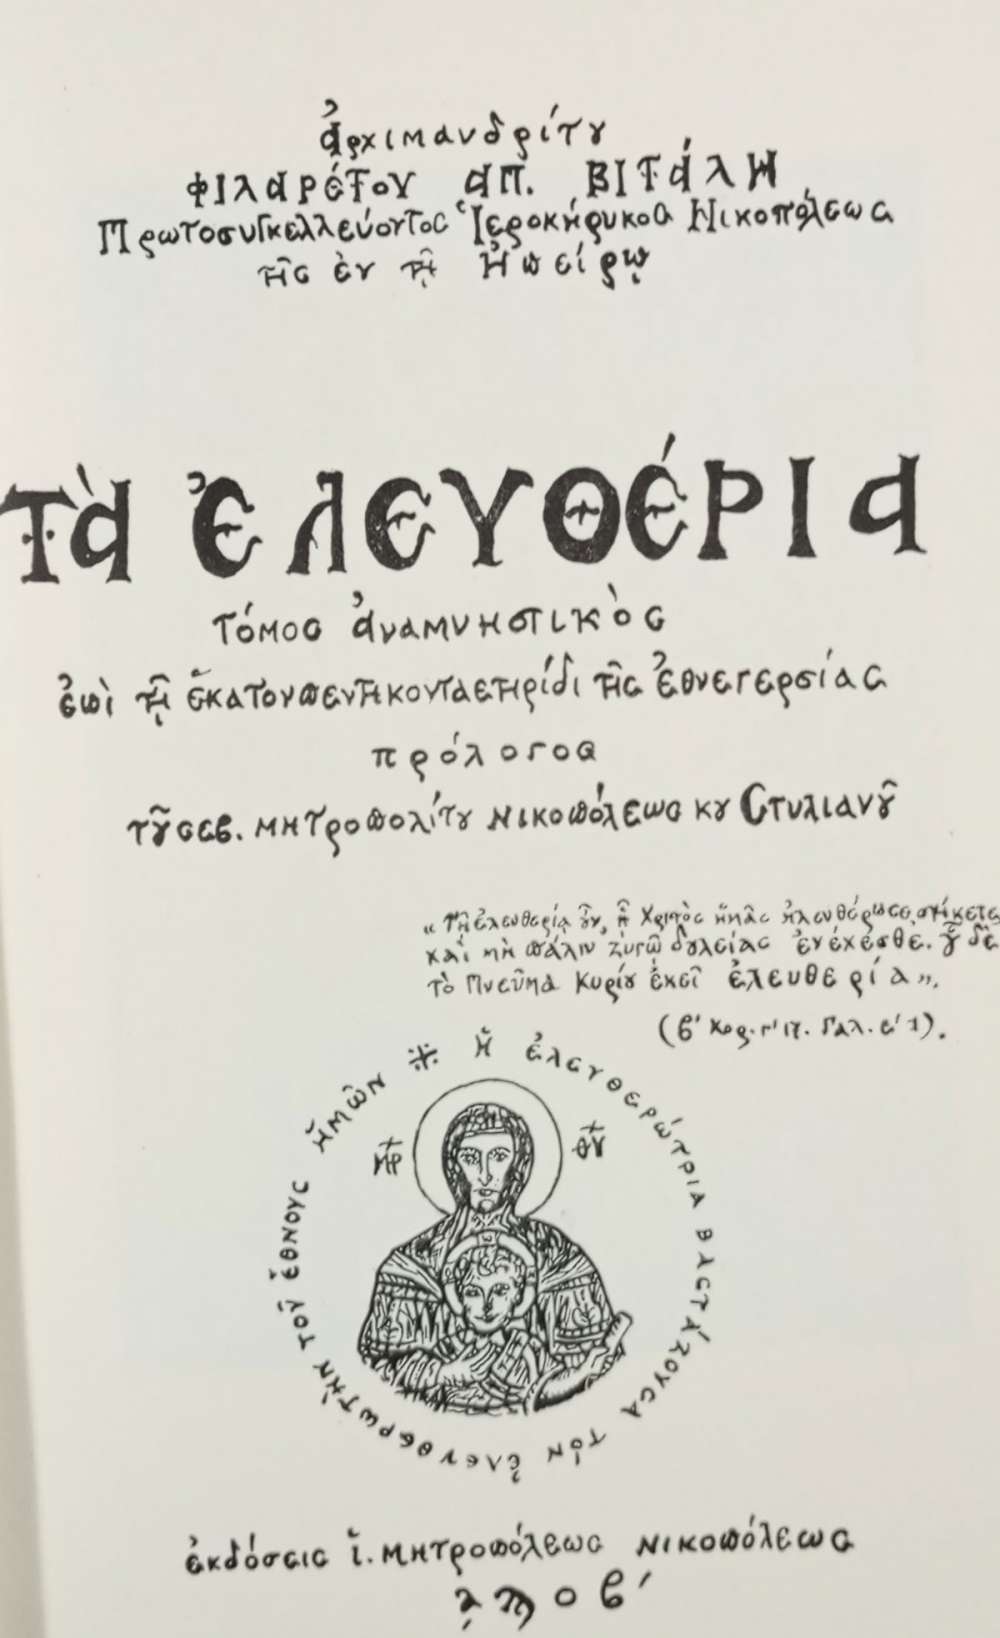 ἀρχιμανδρίτου
ΦΙΛΑΡΕΤΟΥ ΑΠ. ΒΙΤΑΛΗ
Πρωτοσυγκελλεύοντος Ἱεροκήρυκος Νικοπόλεως
τῆς ἐν τῇ Ἠπείρῳ
ΤΑ ἘΛΕΥΘΕΡΙΑ
τόμος ἀναμνηστικὸς
ἐπὶ τῇ ἑκατονπεντηκονταετηρίδι τῆς ἐθνεγερσίας
πρόλογος
τοῦ σεβ. μητροπολίτου νικοπόλεως κυ Στυλιανοῦ
«Τῇ ἐλευθερίᾳ οὖν, ᾗ Χριστὸς ἡμᾶς ἠλευθέρωσε, στήκετε
καὶ μὴ πάλιν ζυγῷ δουλείας ἐνέχεσθε. οὗ δὲ
τὸ Πνεῦμα Κυρίου ἐκεῖ ἐλευθερία».
(β' Κορ. γ' 17. Γαλ. ε' 1).
Ἡ ἘΛΕΥΘΕΡΩΤΡΙΑ ΒΑΣΤΑΖΟΥΣΑ ΤΟΝ ἘΛΕΥΘΕΡΩΤΗΝ ΤΟΥ ἜΘΝΟΥΣ ἩΜΩΝ
ΜΡ ΘΥ
ἐκδόσεις ἱ. μητροπόλεως νικοπόλεως
͵αϡοβ'